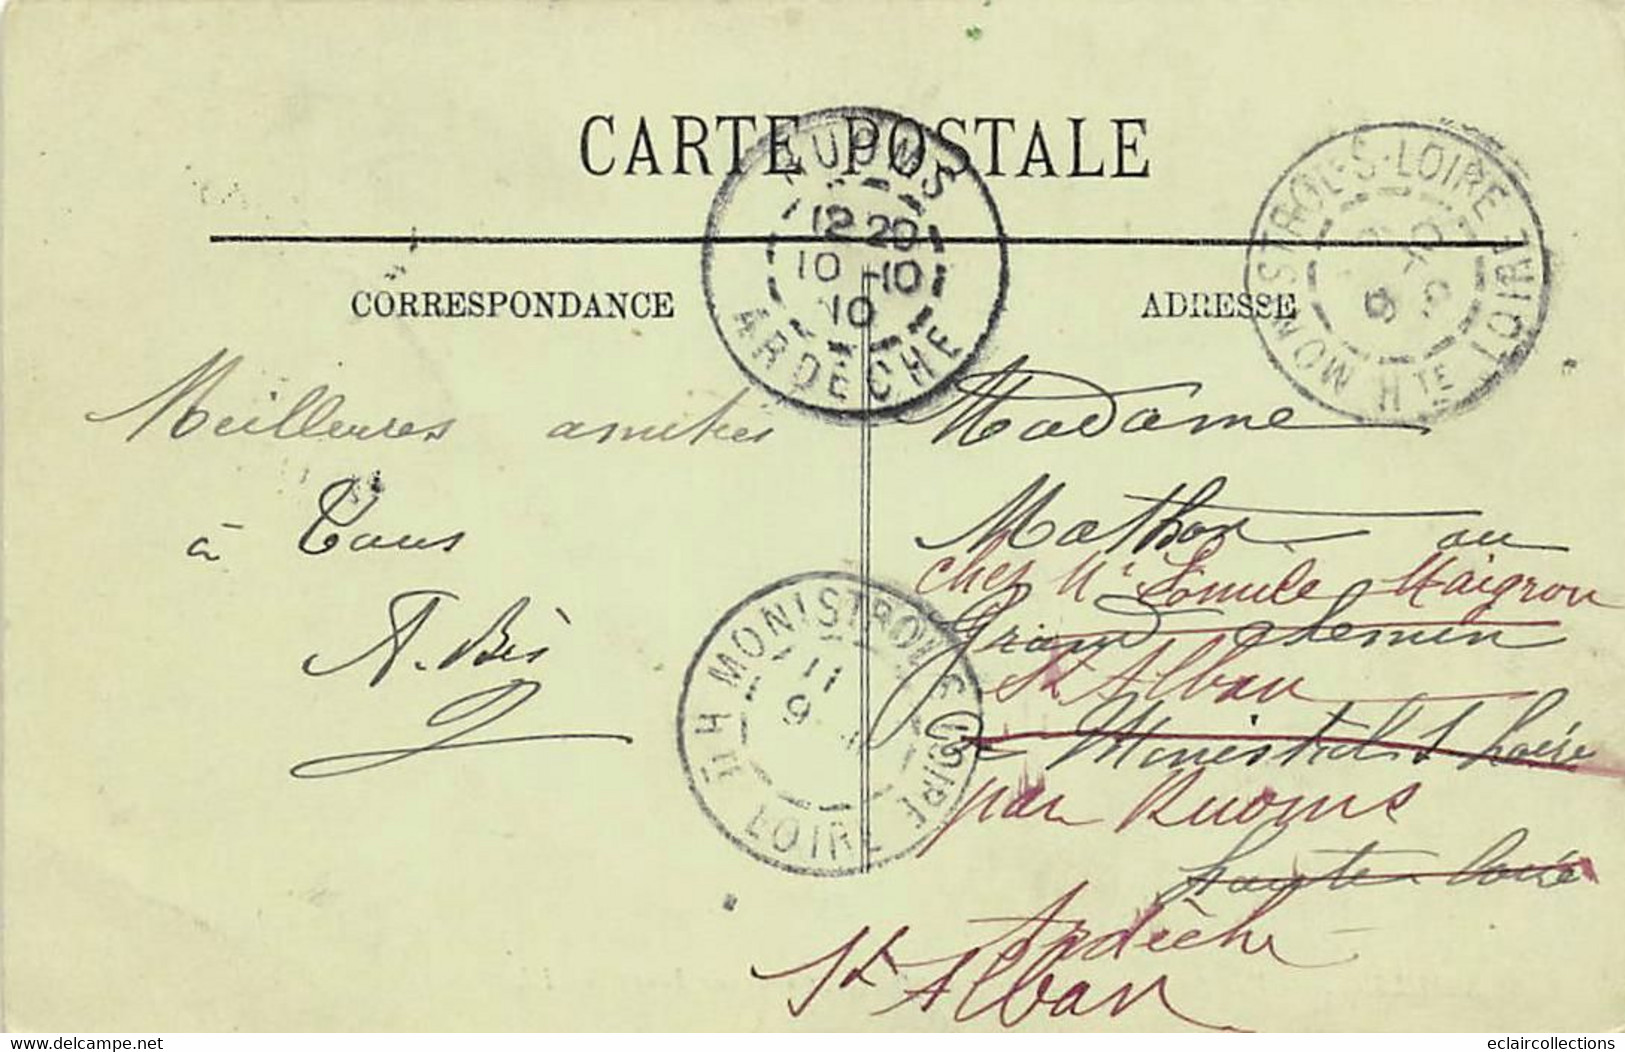 CARTE POSTALE
RUOMS
12 20
10 -10
10
ARDÈCHE
MONISTROL-S-LOIRE
HTE LOIRE
CORRESPONDANCE
ADRESSE
Meilleures amitiés
à Tous
A. Bès
MONISTROL S LOIRE
11
9
HTE LOIRE
Madame
Mathon au
chez Mr Emile Maigron
Grand chemin
St Alban
Monistrol s Loire
par Ruoms
Haute Loire
Ardèche
St Alban
https://www.delcampe.net
eclaircollections